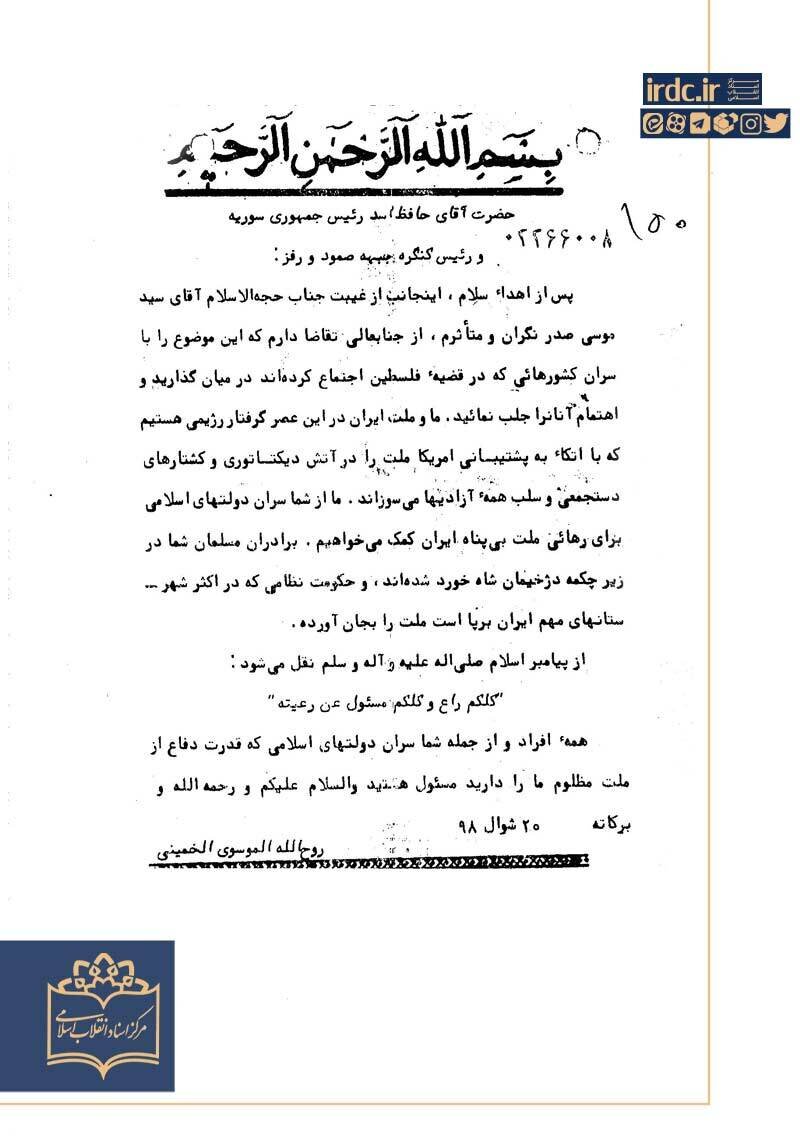 irdc.ir
مرکز اسناد انقلاب اسلامی
بسم الله الرحمن الرحیم
حضرت آقای حافظ اسد رئیس جمهوری سوریه
۱۵۰
۰۲۲۶۶۰۰۸
و رئیس کنگره جبهه صمود و رفز :
پس از اهداء سلام ، اینجانب از غیبت جناب حجه‌الاسلام آقای سید
موسی صدر نگران و متأثرم ، از جنابعالی تقاضا دارم که این موضوع را با
سران کشورهائی که در قضیهء فلسطین اجتماع کرده‌اند در میان گذارید و
اهتمام آنانرا جلب نمائید . ما و ملت ایران در این عصر گرفتار رژیمی هستیم
که با اتکاء به پشتیبانی امریکا ملت را در آتش دیکتاتوری و کشتارهای
دستجمعی و سلب همهء آزادیها می‌سوزاند . ما از شما سران دولتهای اسلامی
برای رهائی ملت بی‌پناه ایران کمک می‌خواهیم . برادران مسلمان شما در
زیر چکمه دژخیمان شاه خورد شده‌اند ، و حکومت نظامی که در اکثر شهر ــ
ستانهای مهم ایران برپا است ملت را بجان آورده .
از پیامبر اسلام صلی‌اله علیه و آله و سلم نقل می‌شود :
"کلکم راع و کلکم مسئول عن رعیته"
همهء افراد و از جمله شما سران دولتهای اسلامی که قدرت دفاع از
ملت مظلوم ما را دارید مسئول هستید والسلام علیکم و رحمه الله و
برکاته ۲۰ شوال ۹۸
روح‌الله الموسوی الخمینی
مرکز اسناد انقلاب اسلامی